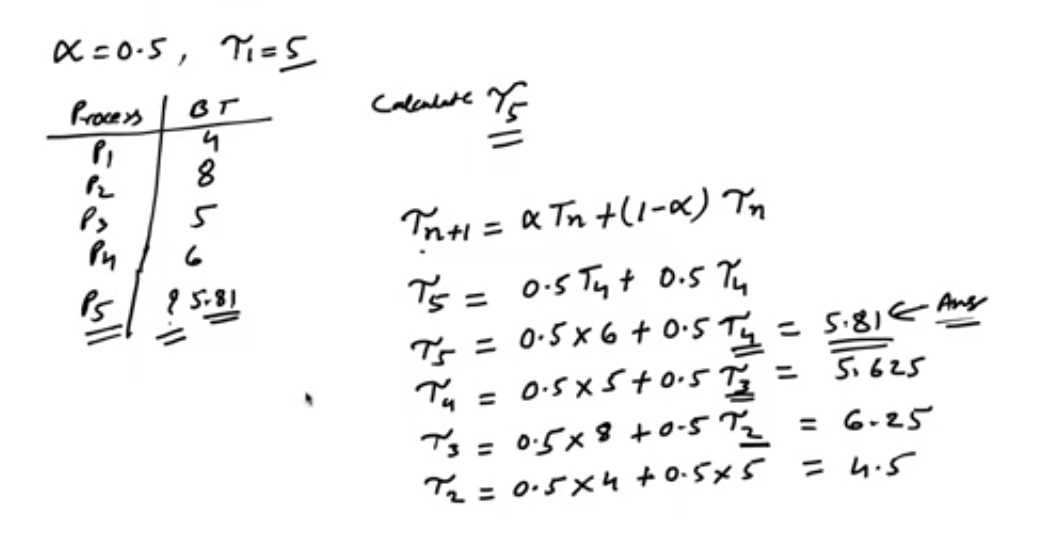 α = 0.5, τ₁ = 5
Process BT
P₁ 4
P₂ 8
P₃ 5
P₄ 6
P₅ ? 5.81
Calculate τ₅
τₙ₊₁ = α Tₙ + (1-α) τₙ
τ₅ = 0.5 T₄ + 0.5 τ₄
τ₅ = 0.5 × 6 + 0.5 τ₄ = 5.81 ← Ans
τ₄ = 0.5 × 5 + 0.5 τ₃ = 5.625
τ₃ = 0.5 × 8 + 0.5 τ₂ = 6.25
τ₂ = 0.5 × 4 + 0.5 × 5 = 4.5